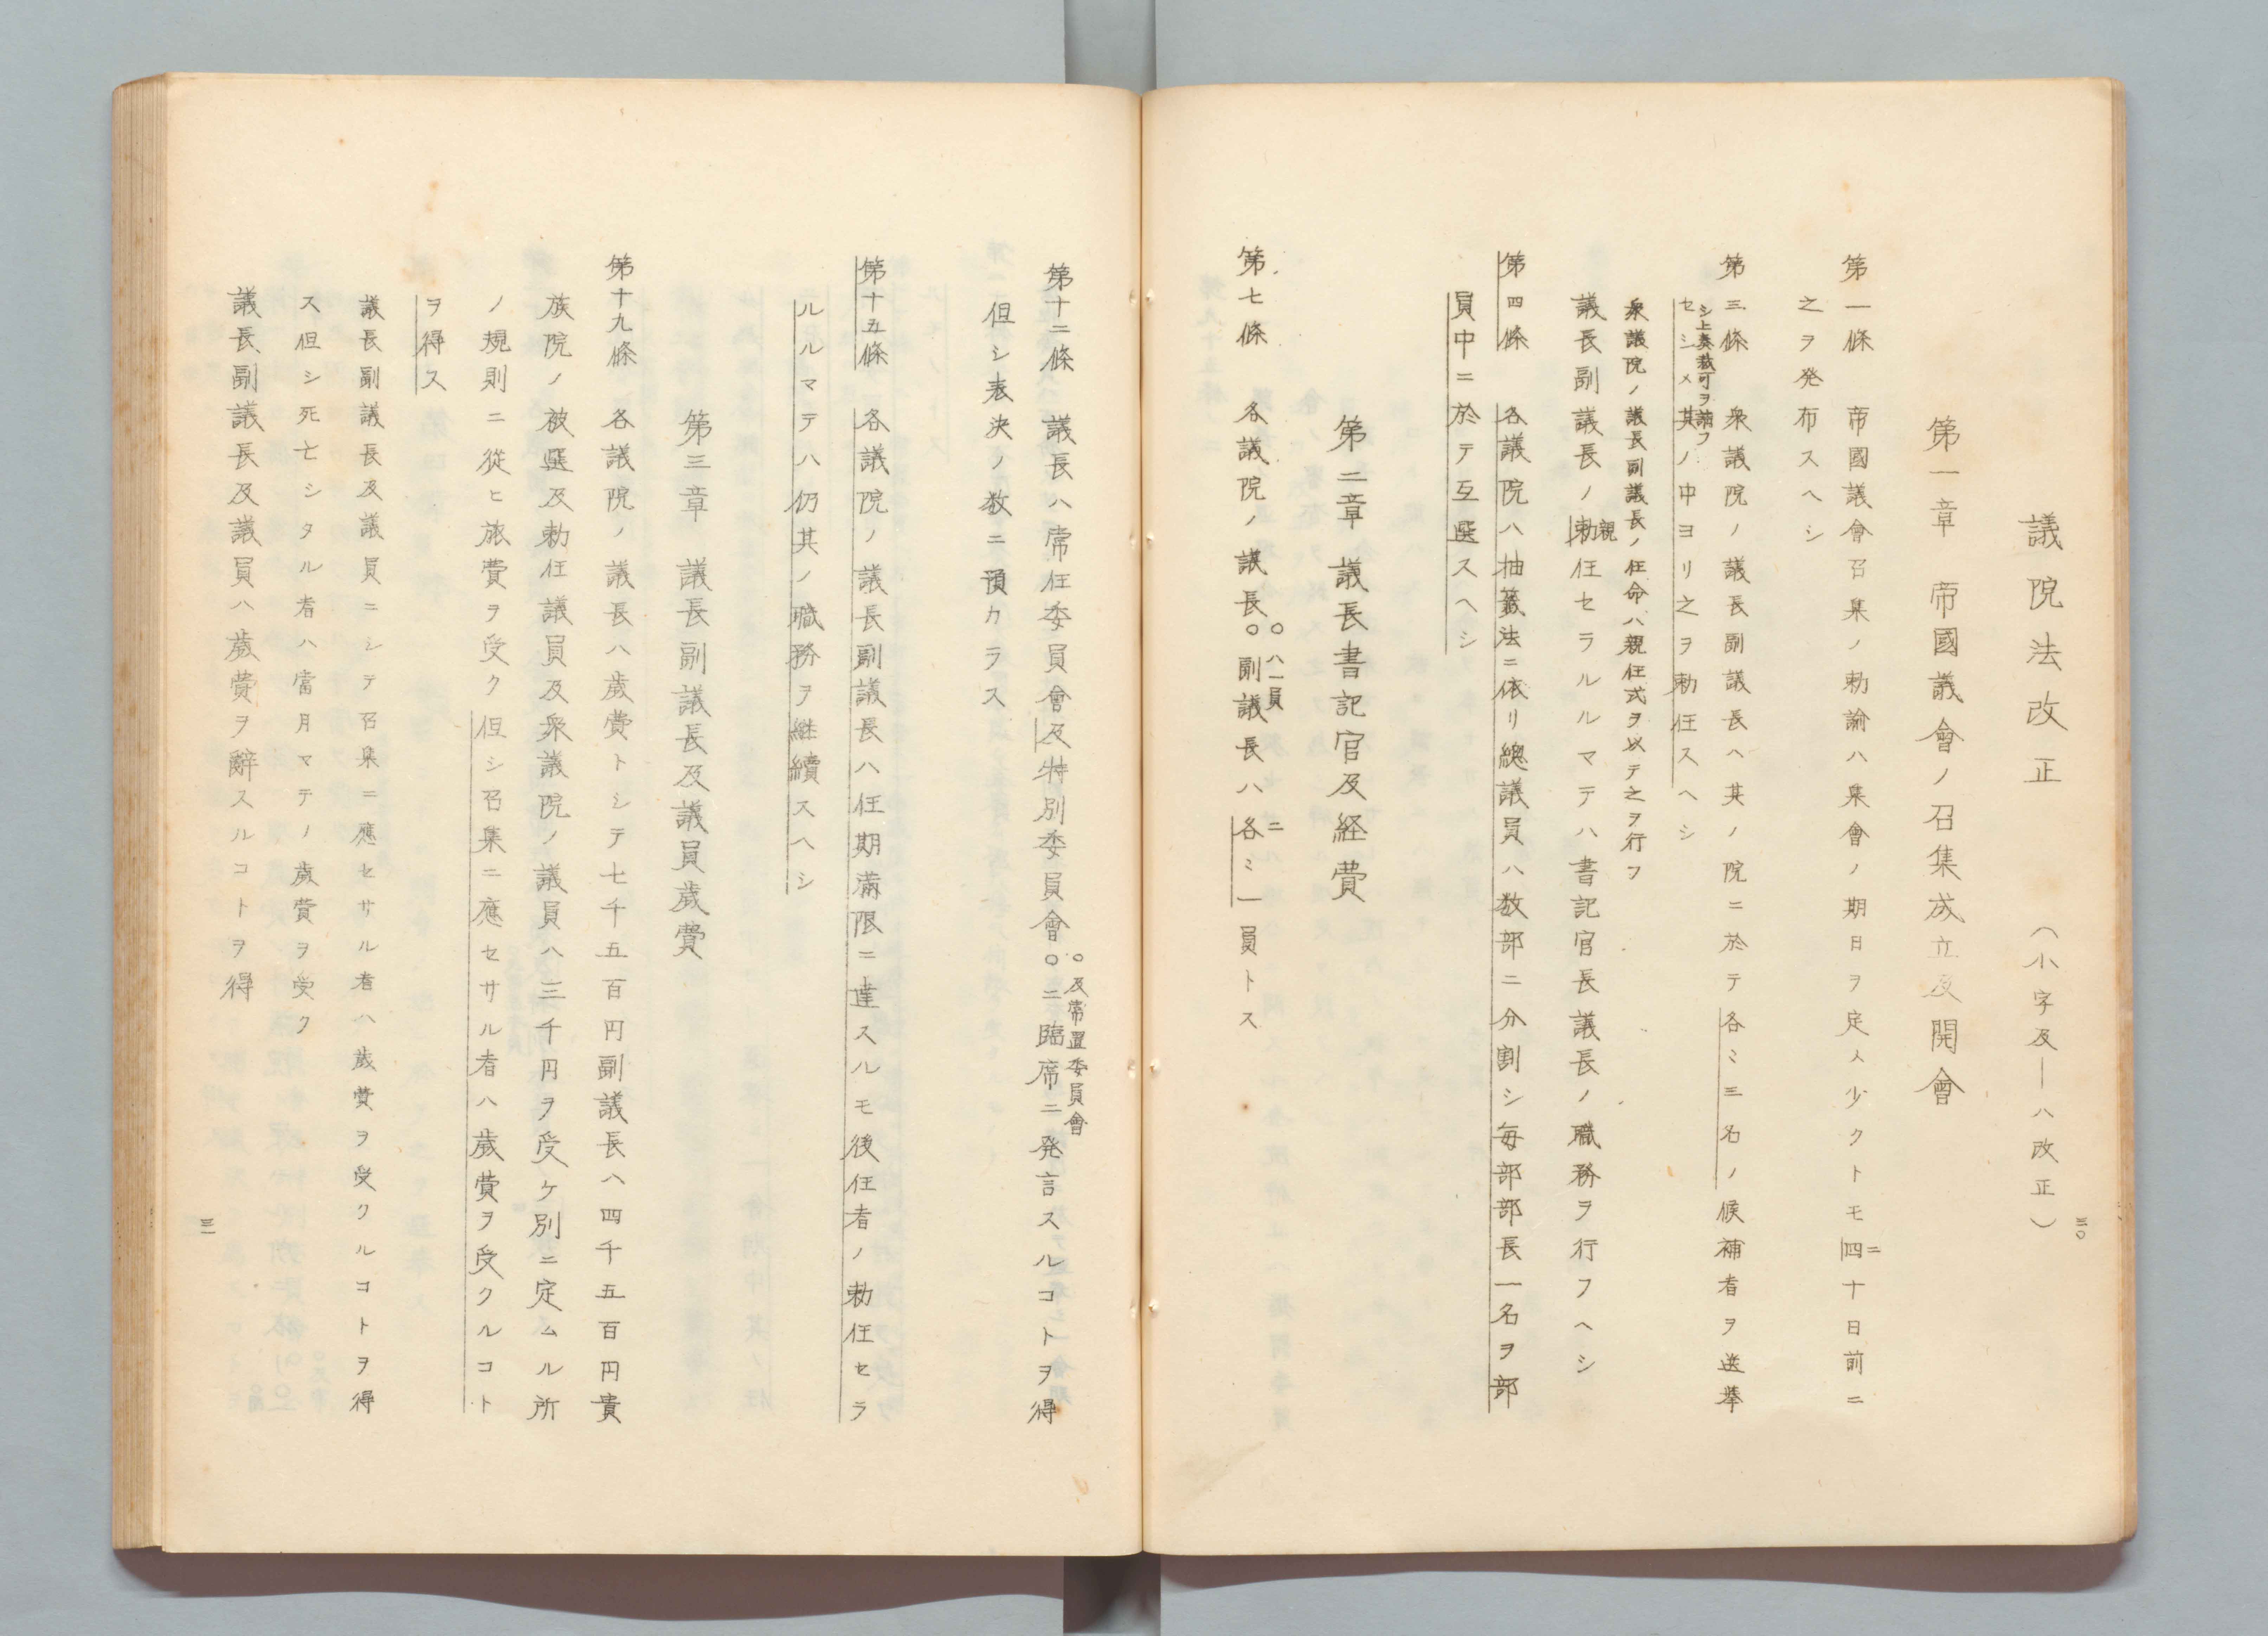 三〇
議院法改正　（小字及―ハ改正）
第一章　帝國議會ノ召集成立及開會
第一條　帝國議會召集ノ勅諭ハ集會ノ期日ヲ定メ少クトモ四十日前ニ
二
之ヲ発布スヘシ
第三條　衆議院ノ議長副議長ハ其ノ院ニ於テ各ミ三名ノ候補者ヲ選挙
シ上奏裁可ヲ請フ
セシメ其ノ中ヨリ之ヲ勅任スヘシ
衆議院ノ議長副議長ノ任命ハ親任式ヲ以テ之ヲ行フ
親
議長副議長ノ勅任セラルルマテハ書記官長議長ノ職務ヲ行フヘシ
第四條　各議院ハ抽籤法ニ依リ總議員ハ数部ニ分割シ毎部部長一名ヲ部
員中ニ於テ互選スヘシ
第二章　議長書記官及経費
○ハ一員　二
第七條　各議院ノ議長○副議長ハ各ミ一員トス
○及常置委員會
第十二條　議長ハ常任委員會及特別委員會○ニ臨席ニ発言スルコトヲ得
但シ表決ノ数ニ預カラス
第十五條　各議院ノ議長副議長ハ任期満限ニ達スルモ後任者ノ勅任セラ
ルルマテハ仍其ノ職務ヲ継續スヘシ
第三章　議長副議長及議員歳費
第十九條　各議院ノ議長ハ歳費トシテ七千五百円副議長ハ四千五百円貴
族院ノ被選及勅任議員及衆議院ノ議員ハ三千円ヲ受ケ別ニ定ムル所
ノ規則ニ従ヒ旅費ヲ受ク但シ召集ニ應セサル者ハ歳費ヲ受クルコト
ヲ得ス
議長副議長及議員ニシテ召集ニ應セサル者ハ歳費ヲ受クルコトヲ得
ス但シ死亡シタル者ハ當月マテノ歳費ヲ受ク
議長副議長及議員ハ歳費ヲ辭スルコトヲ得
三一